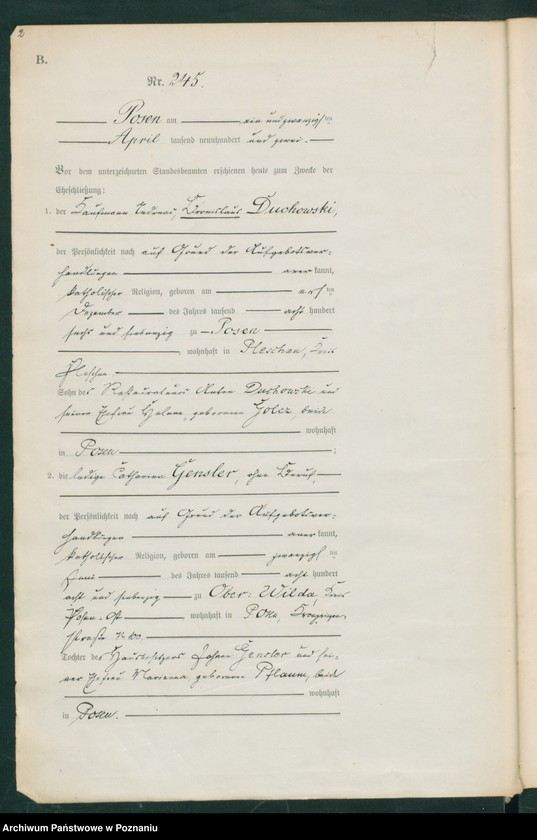 2
B.
Nr. 245.
Posen am ein und zwanzigsten
April tausend neunhundert und zwei.
Vor dem unterzeichneten Standesbeamten erschienen heute zum Zwecke der
Eheschließung:
1. der Kaufmann Andreas, Duchowski,
der Persönlichkeit nach auf Grund der Aufgebotsver=
handlungen anerkannt,
katholischer Religion, geboren am ten
Dezember des Jahres tausend acht hundert
sechs und siebenzig zu Posen
, wohnhaft in Pleschen, Kreis
Pleschen
Sohn des Restaurateurs Anton Duchowski und
seiner Ehefrau Helene, geborenen Golcz, beide
wohnhaft
in Posen ;
2. die ledige Catharina Gensler, ohne Beruf,
der Persönlichkeit nach auf Grund der Aufgebotsver=
handlungen anerkannt,
katholischer Religion, geboren am zwanzigsten
des Jahres tausend acht hundert
acht und siebenzig zu Ober=Wilda, Kreis
Posen-Ost wohnhaft in Posen, Kronprinzen
straße No 100.
Tochter des Hausbesitzers Johann Gensler und sei=
ner Ehefrau Marianna geborenen Pflaum, beide
wohnhaft
in Posen.
Archiwum Państwowe w Poznaniu